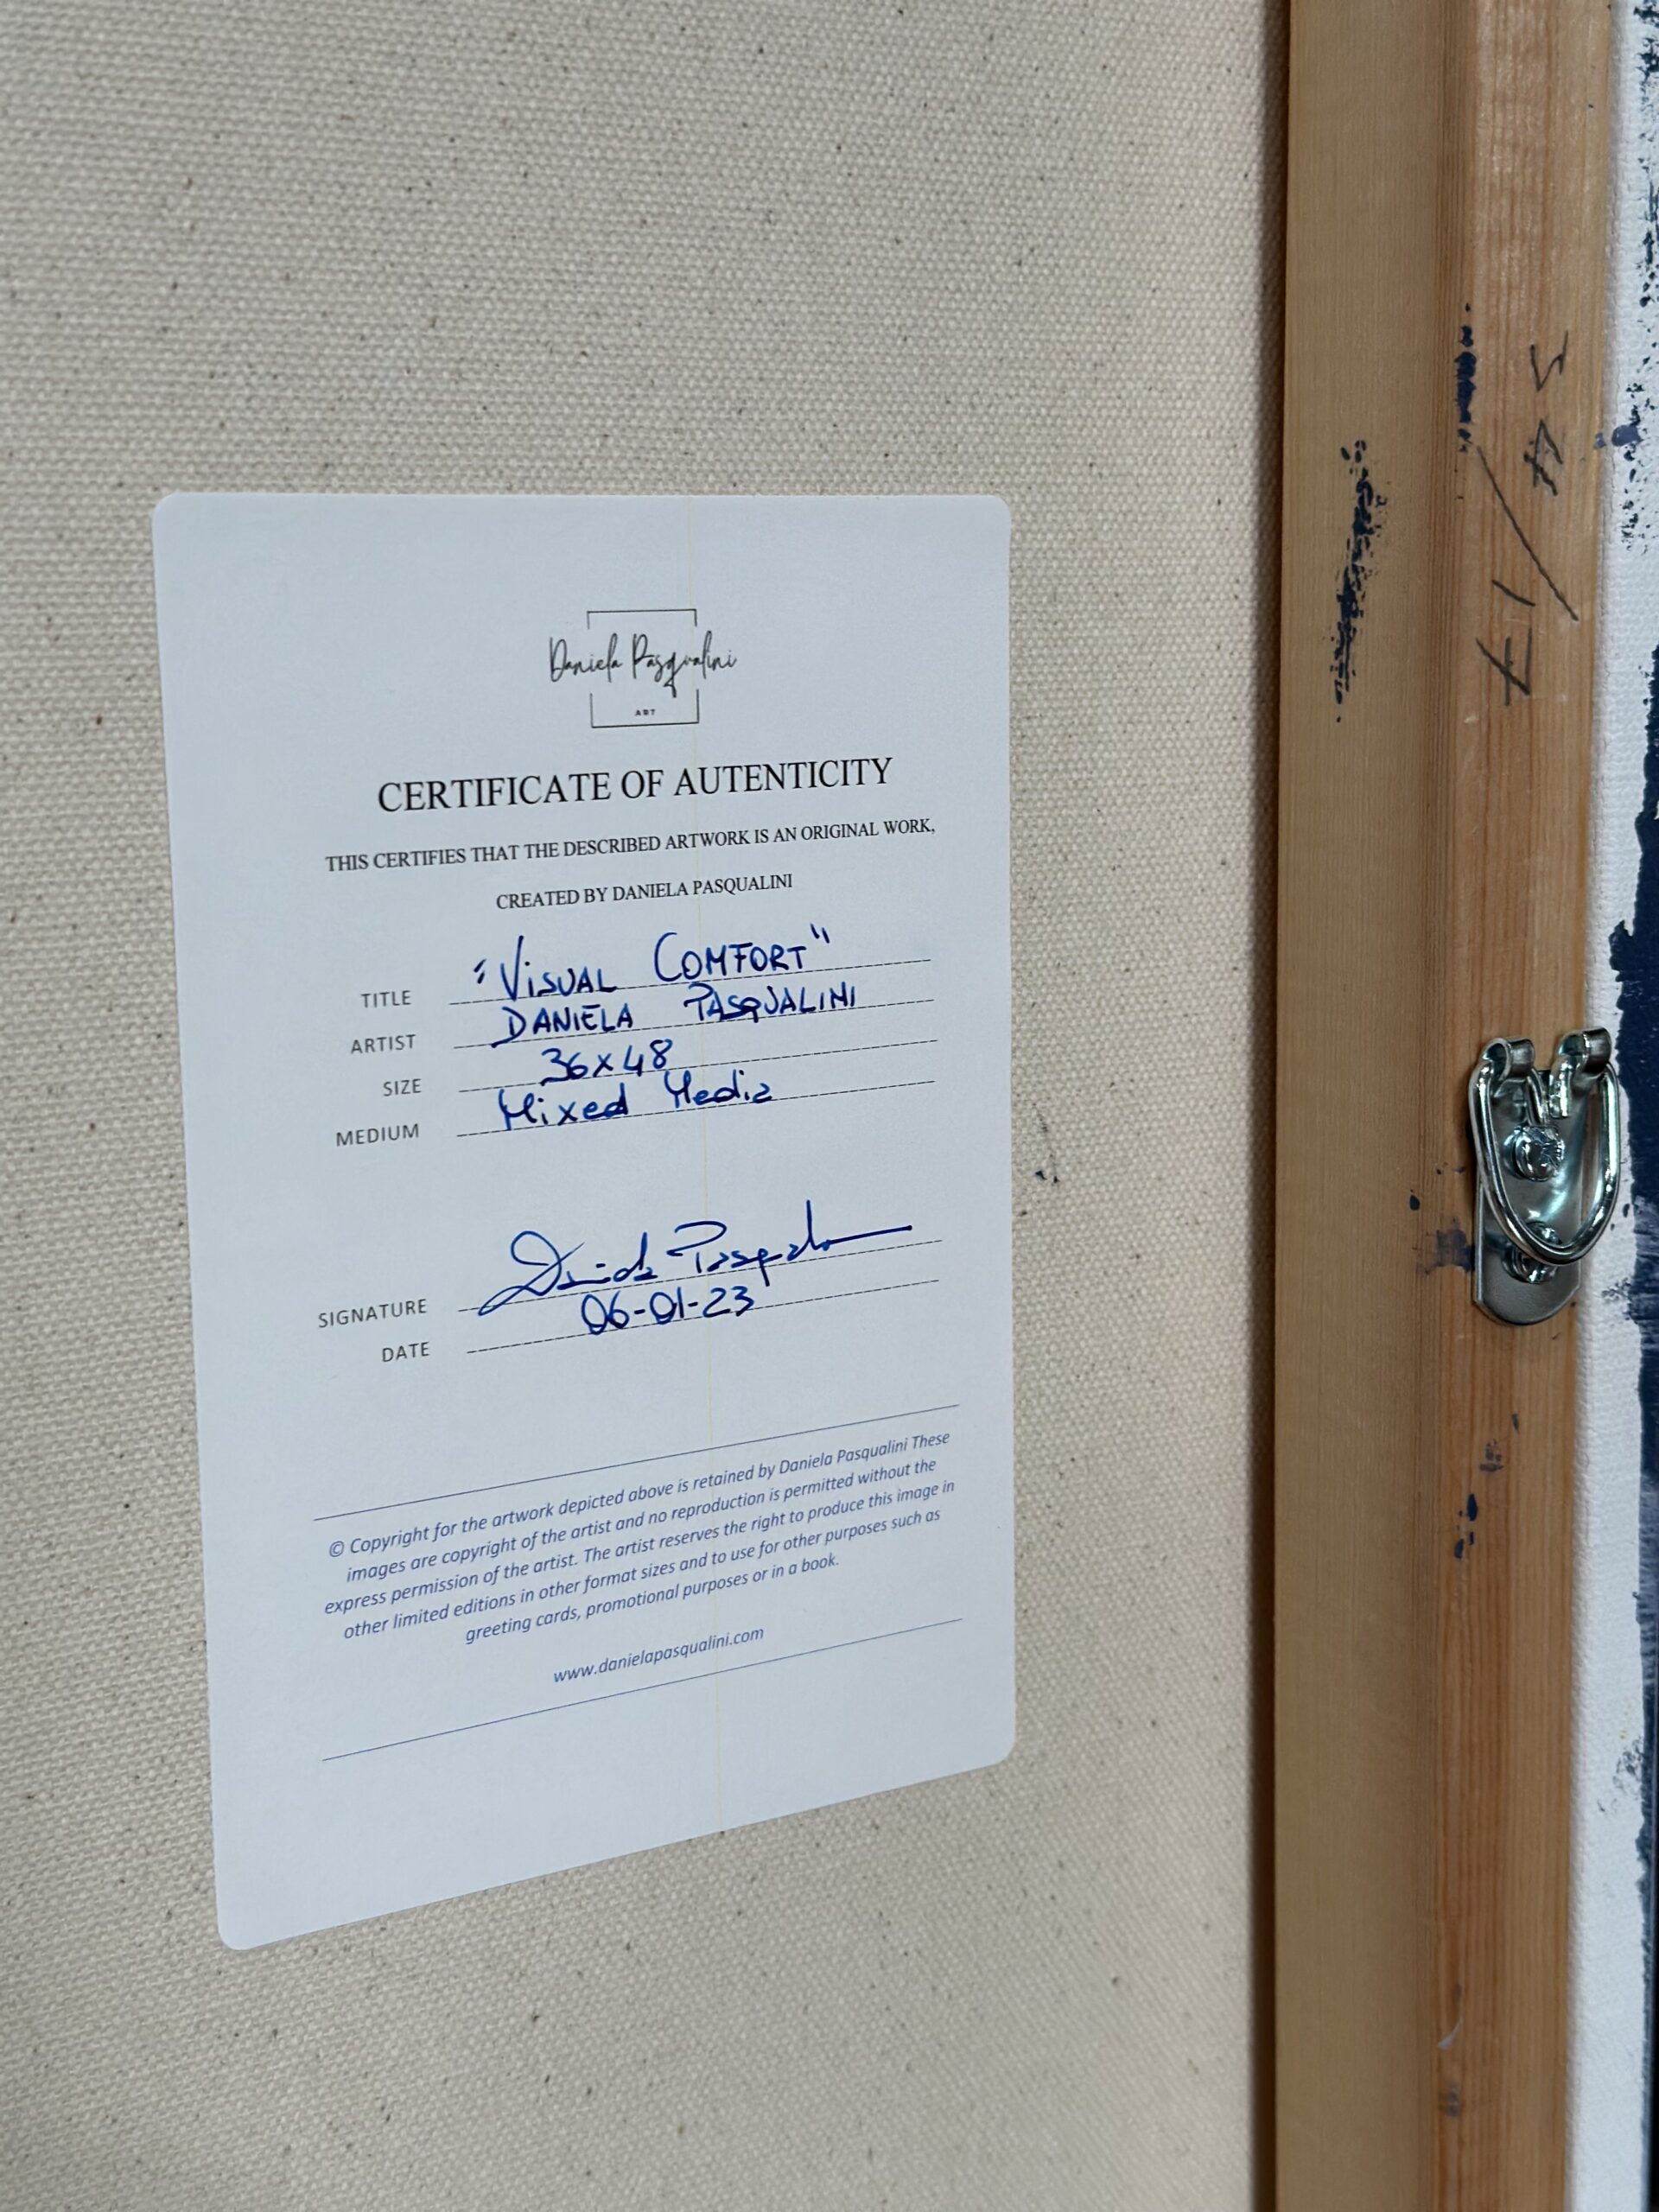 Daniela Pasqualini
ART
CERTIFICATE OF AUTENTICITY
THIS CERTIFIES THAT THE DESCRIBED ARTWORK IS AN ORIGINAL WORK,
CREATED BY DANIELA PASQUALINI
TITLE "VISUAL COMFORT"
ARTIST DANIELA PASQUALINI
SIZE 36x48
MEDIUM Mixed Media
SIGNATURE Daniela Pasqualini
DATE 06-01-23
© Copyright for the artwork depicted above is retained by Daniela Pasqualini These
images are copyright of the artist and no reproduction is permitted without the
express permission of the artist. The artist reserves the right to produce this image in
other limited editions in other format sizes and to use for other purposes such as
greeting cards, promotional purposes or in a book.
www.danielapasqualini.com
34/17